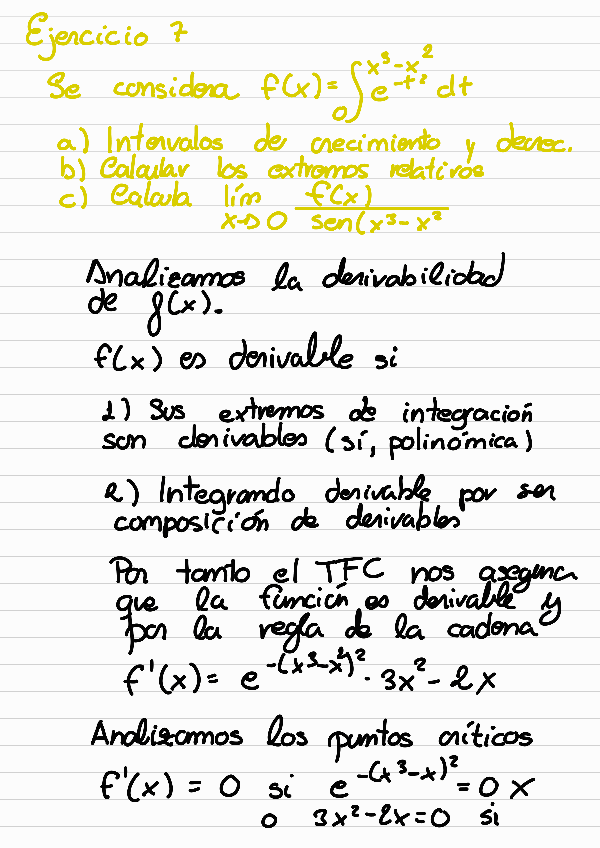 Ejercicio 7
Se considera f(x) = ∫₀^{x³-x²} e^{-t²} dt
a) Intervalos de crecimiento y decrec.
b) Calcular los extremos relativos
c) Calcula lím_{x→0} f(x) / sen(x³-x²
Analizamos la derivabilidad
de f(x).
f(x) es derivable si
1) Sus extremos de integración
son derivables (sí, polinómica)
2) Integrando derivable por ser
composición de derivables
Por tanto el TFC nos asegura
que la función es derivable y
por la regla de la cadena
f'(x) = e^{-(x³-x²)²} · 3x² - 2x
Analizamos los puntos críticos
f'(x) = 0 si e^{-(x³-x)²} = 0 X
o 3x²-2x=0 si